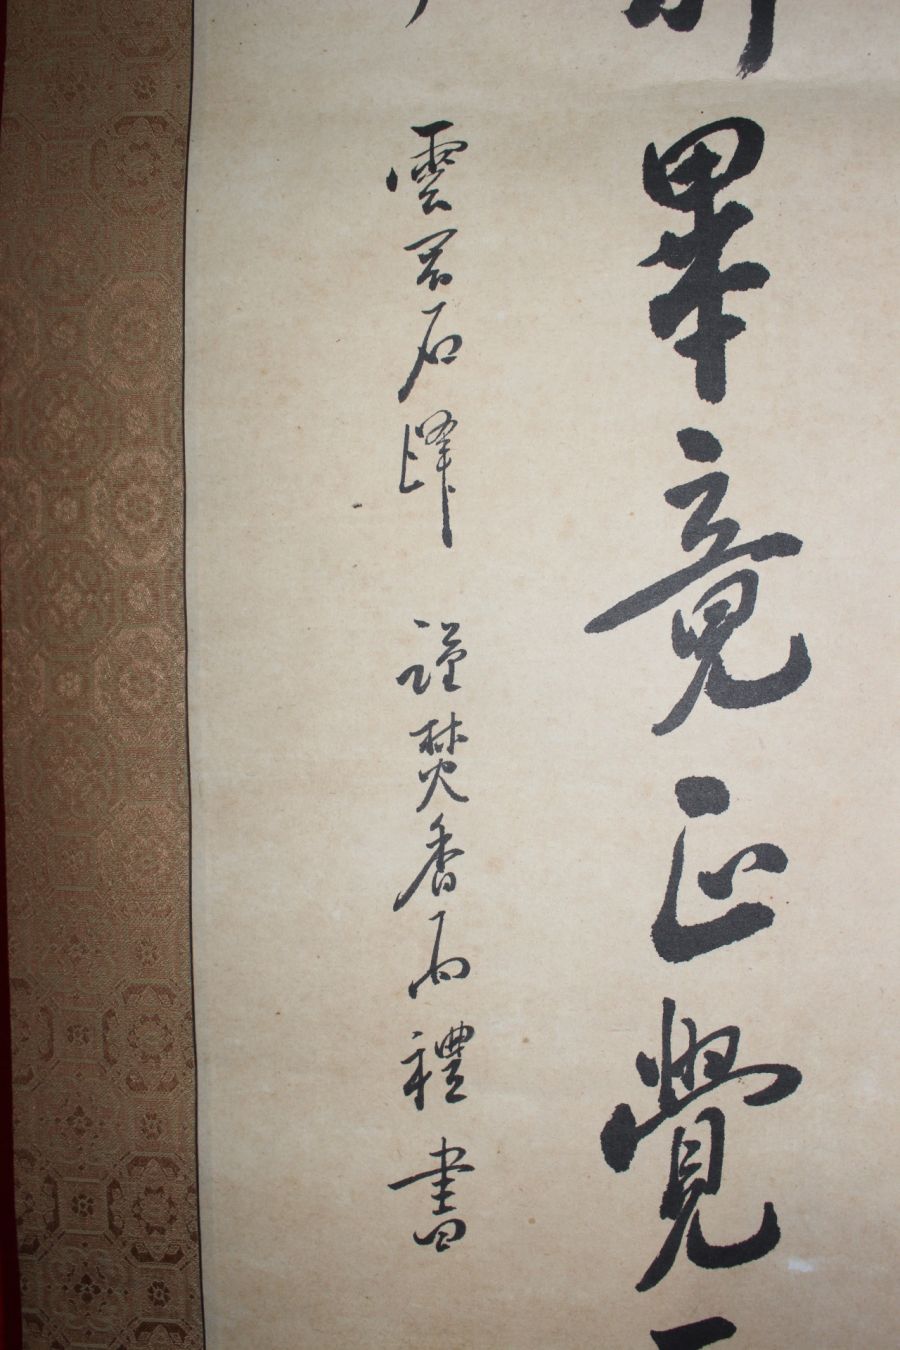 畢竟正覺
雲石 謹焚香而禮書